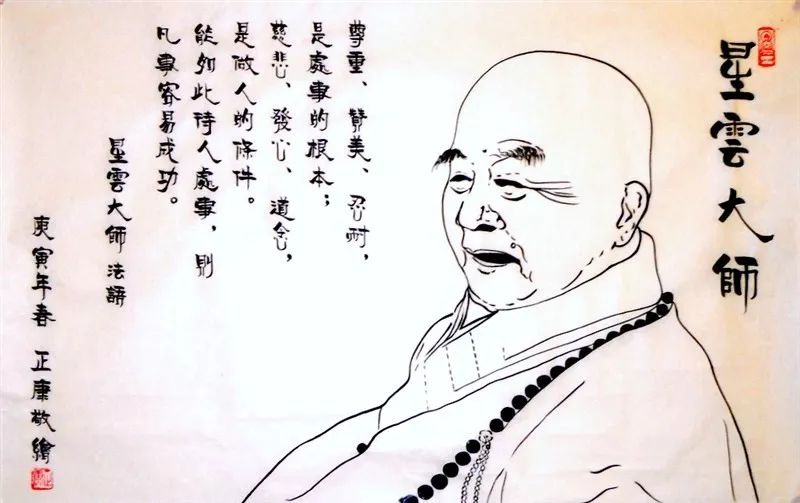 星雲大師
尊重、贊美、忍耐，
是處事的根本；
慈悲、發心、道念，
是做人的條件。
能如此待人處事，則
凡事容易成功。
星雲大師 法語
庚寅年春 正康敬繪